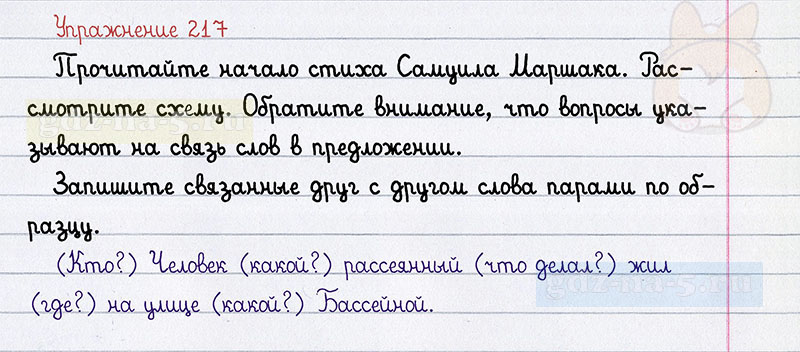 Упражнение 217
Прочитайте начало стиха Самуила Маршака. Рас-
смотрите схему. Обратите внимание, что вопросы ука-
зывают на связь слов в предложении.
Запишите связанные друг с другом слова парами по об-
разцу.
(Кто?) Человек (какой?) рассеянный (что делал?) жил
(где?) на улице (какой?) Бассейной.
gdz-na-5.ru
gdz-na-5.ru